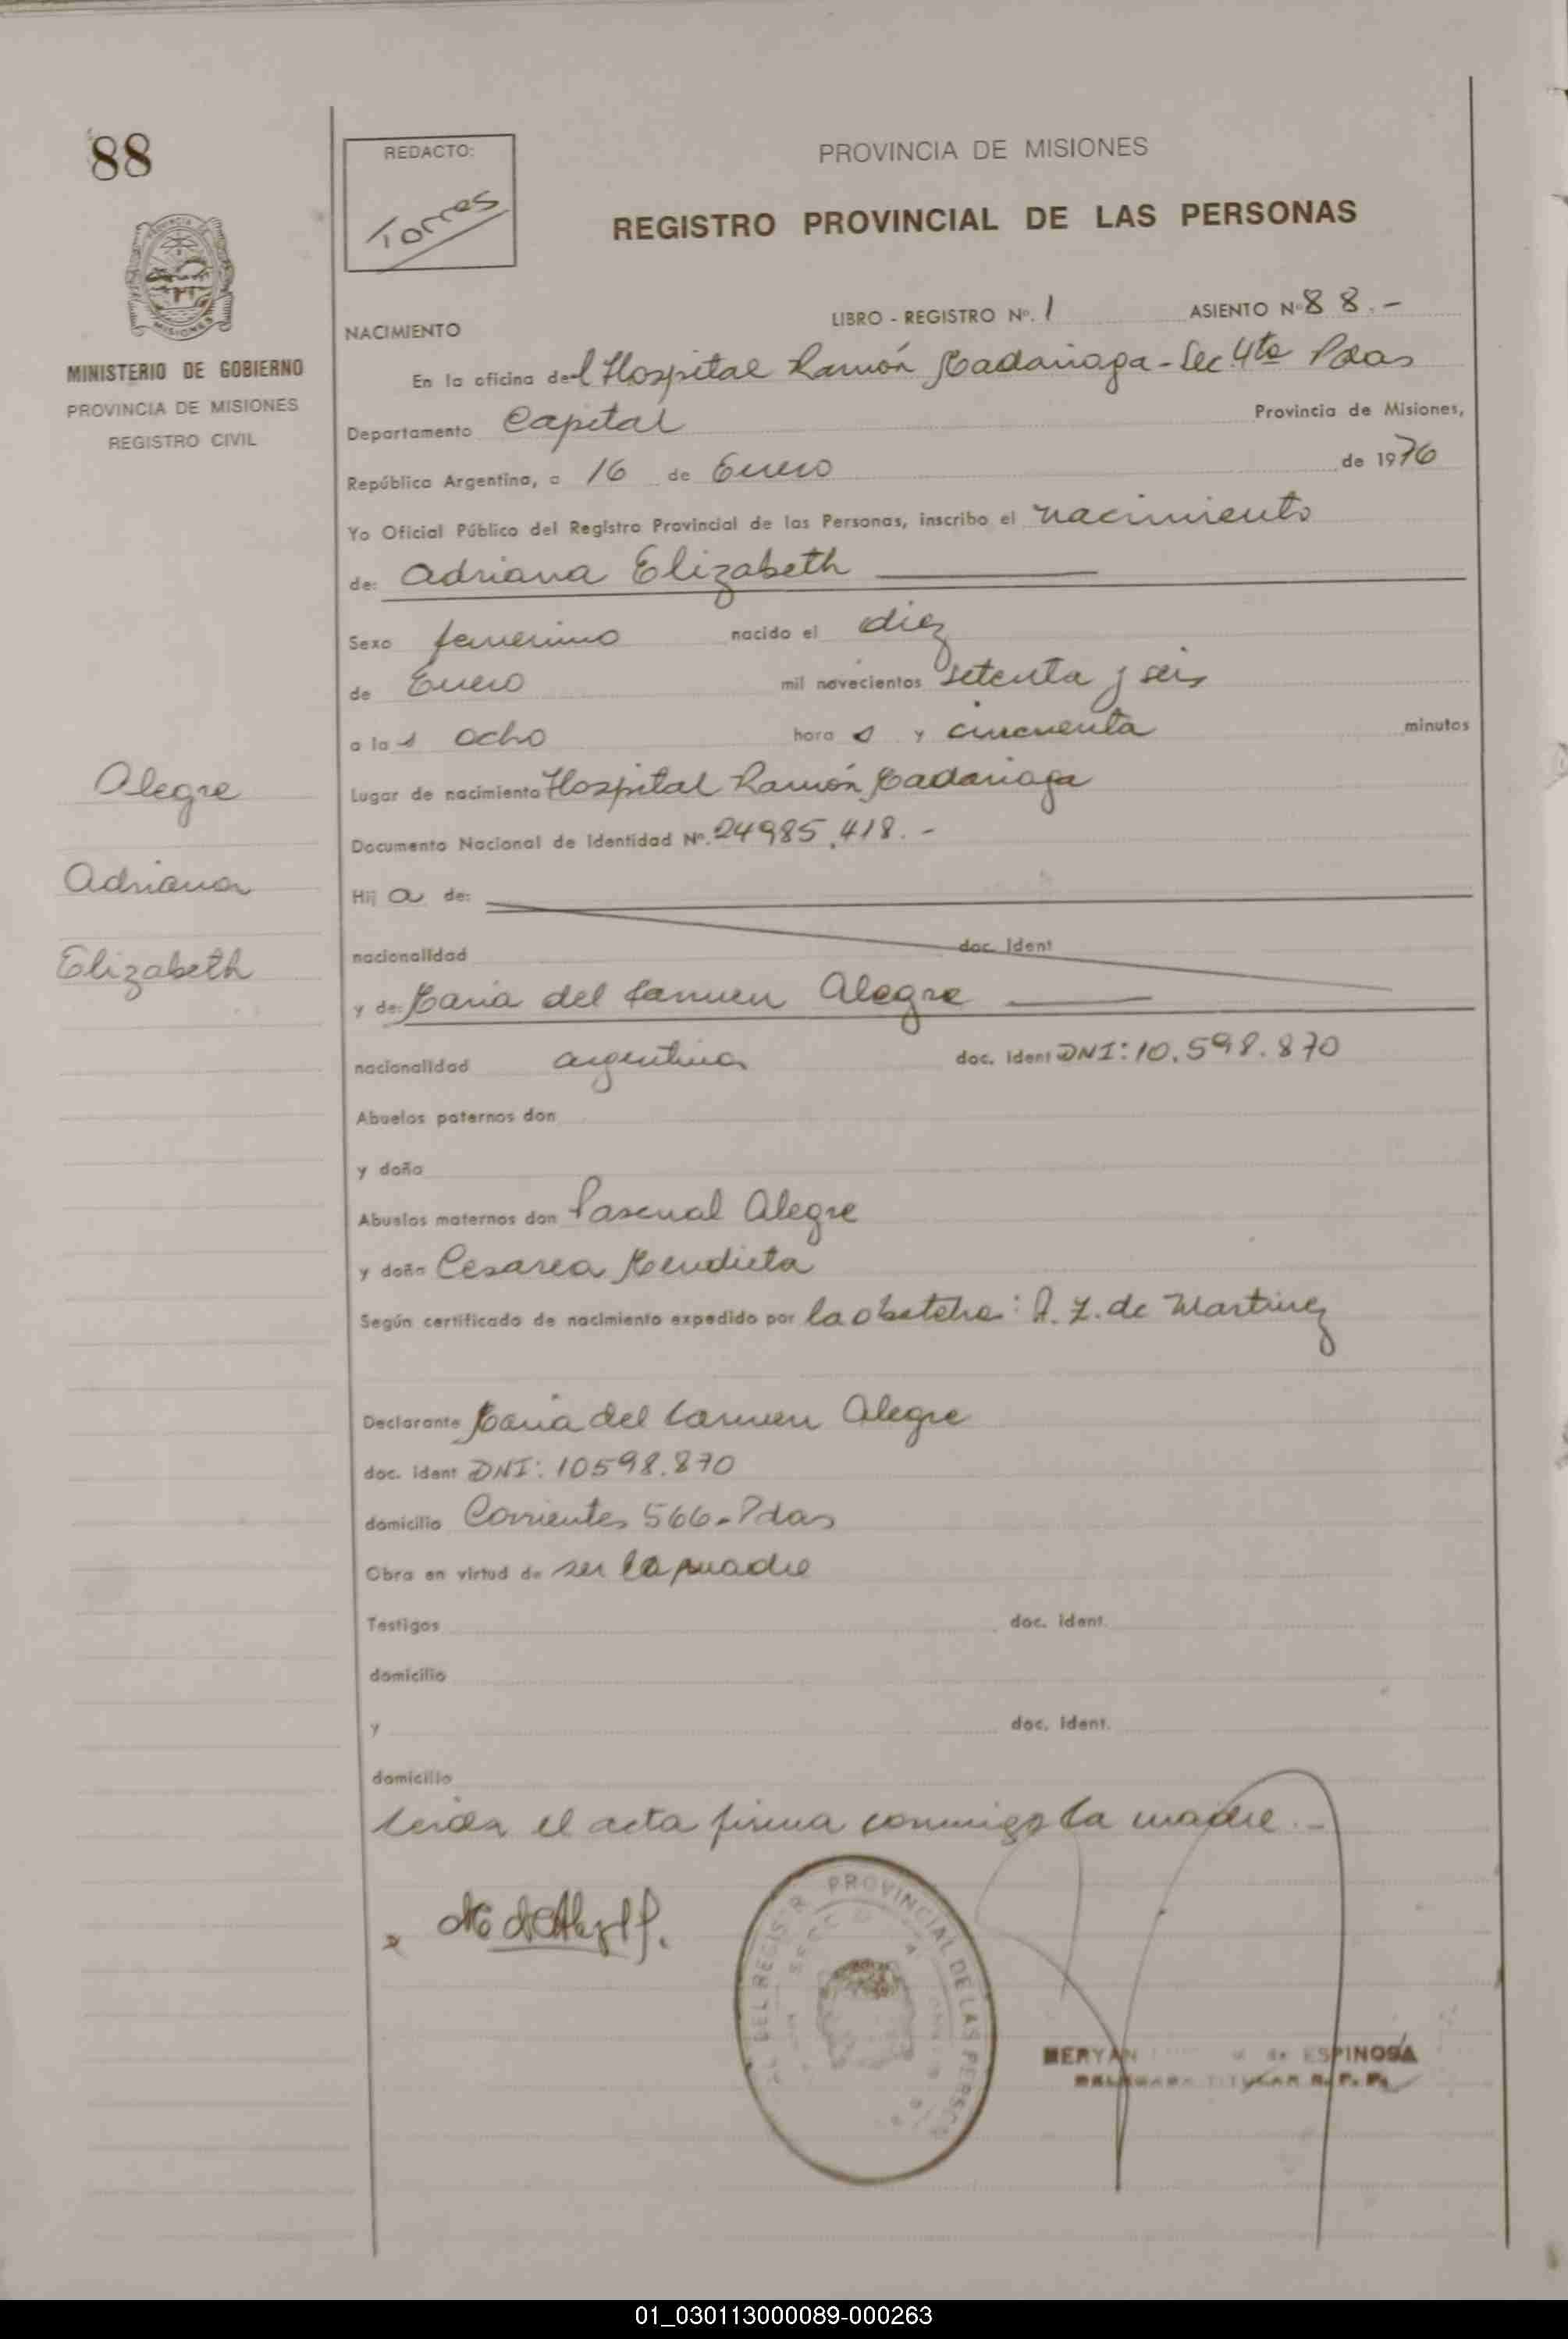 88
MISIONES
MINISTERIO DE GOBIERNO
PROVINCIA DE MISIONES
REGISTRO CIVIL
Alegre
Adriana
Elizabeth
REDACTO:
Torres
PROVINCIA DE MISIONES
REGISTRO PROVINCIAL DE LAS PERSONAS
NACIMIENTO LIBRO - REGISTRO Nº. 1 ASIENTO Nº 88.-
En la oficina del Hospital Ramón Madariaga - Sec. 4ta Pdas
Departamento Capital Provincia de Misiones,
República Argentina, a 16 de Enero de 1976
Yo Oficial Público del Registro Provincial de las Personas, inscribo el nacimiento
de: Adriana Elizabeth
Sexo femenino nacido el diez
de Enero mil novecientos setenta y seis
a las ocho horas y cincuenta minutos
Lugar de nacimiento Hospital Ramón Madariaga
Documento Nacional de Identidad Nº. 24985.418.-
Hija de:
nacionalidad doc. Ident
y de: Maria del Carmen Alegre
nacionalidad argentina doc. Ident DNI: 10.598.870
Abuelos paternos don
y doña
Abuelos maternos don Pascual Alegre
y doña Cesarea Mendieta
Según certificado de nacimiento expedido por la obstetra: A. Z. de Martinez
Declarante Maria del Carmen Alegre
doc. ident DNI: 10598.870
domicilio Corrientes 566 - Pdas
Obra en virtud de ser la madre
Testigos doc. ident.
domicilio
y doc. ident.
domicilio
Leida el acta firma conmigo la madre.-
DEL REGISTR PROVINCIAL DE LAS PERSON
MERYAN de ESPINOSA
DELEGADA TITULAR R. P. P.
01_030113000089-000263